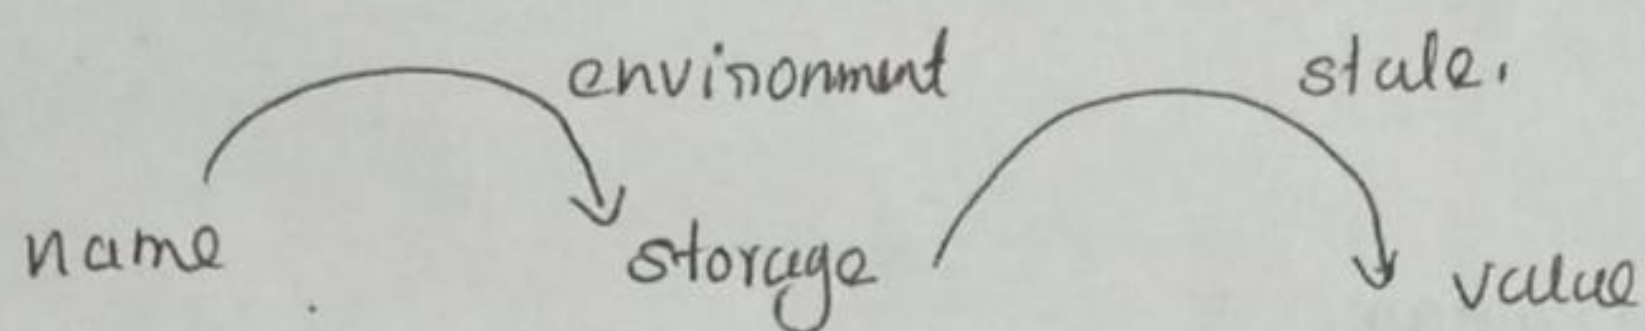 environment state.
name storage value